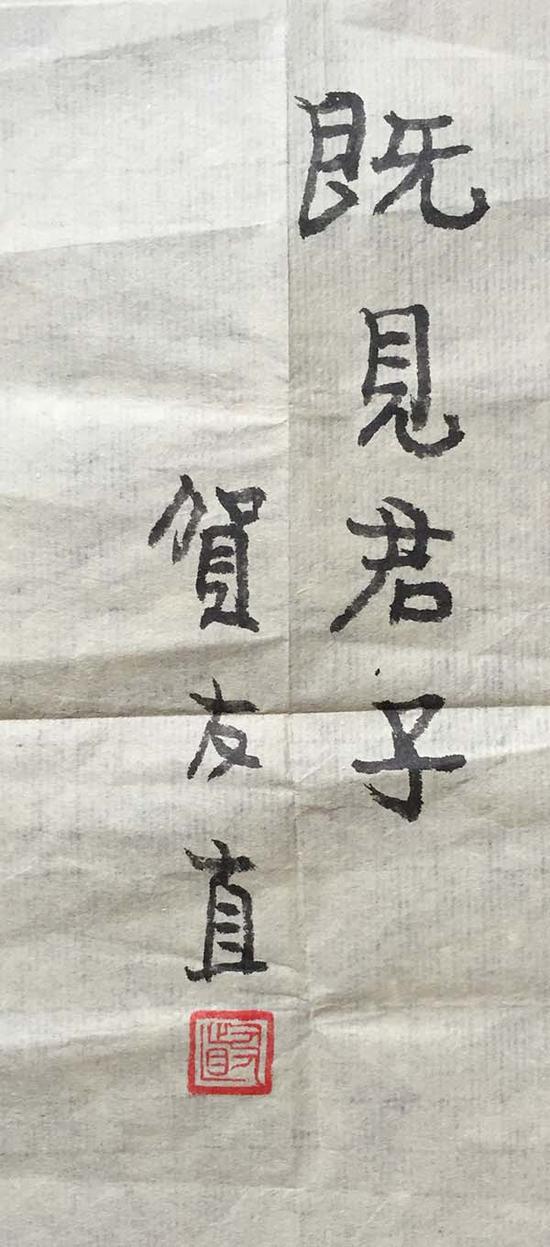 既見君子
賀友直